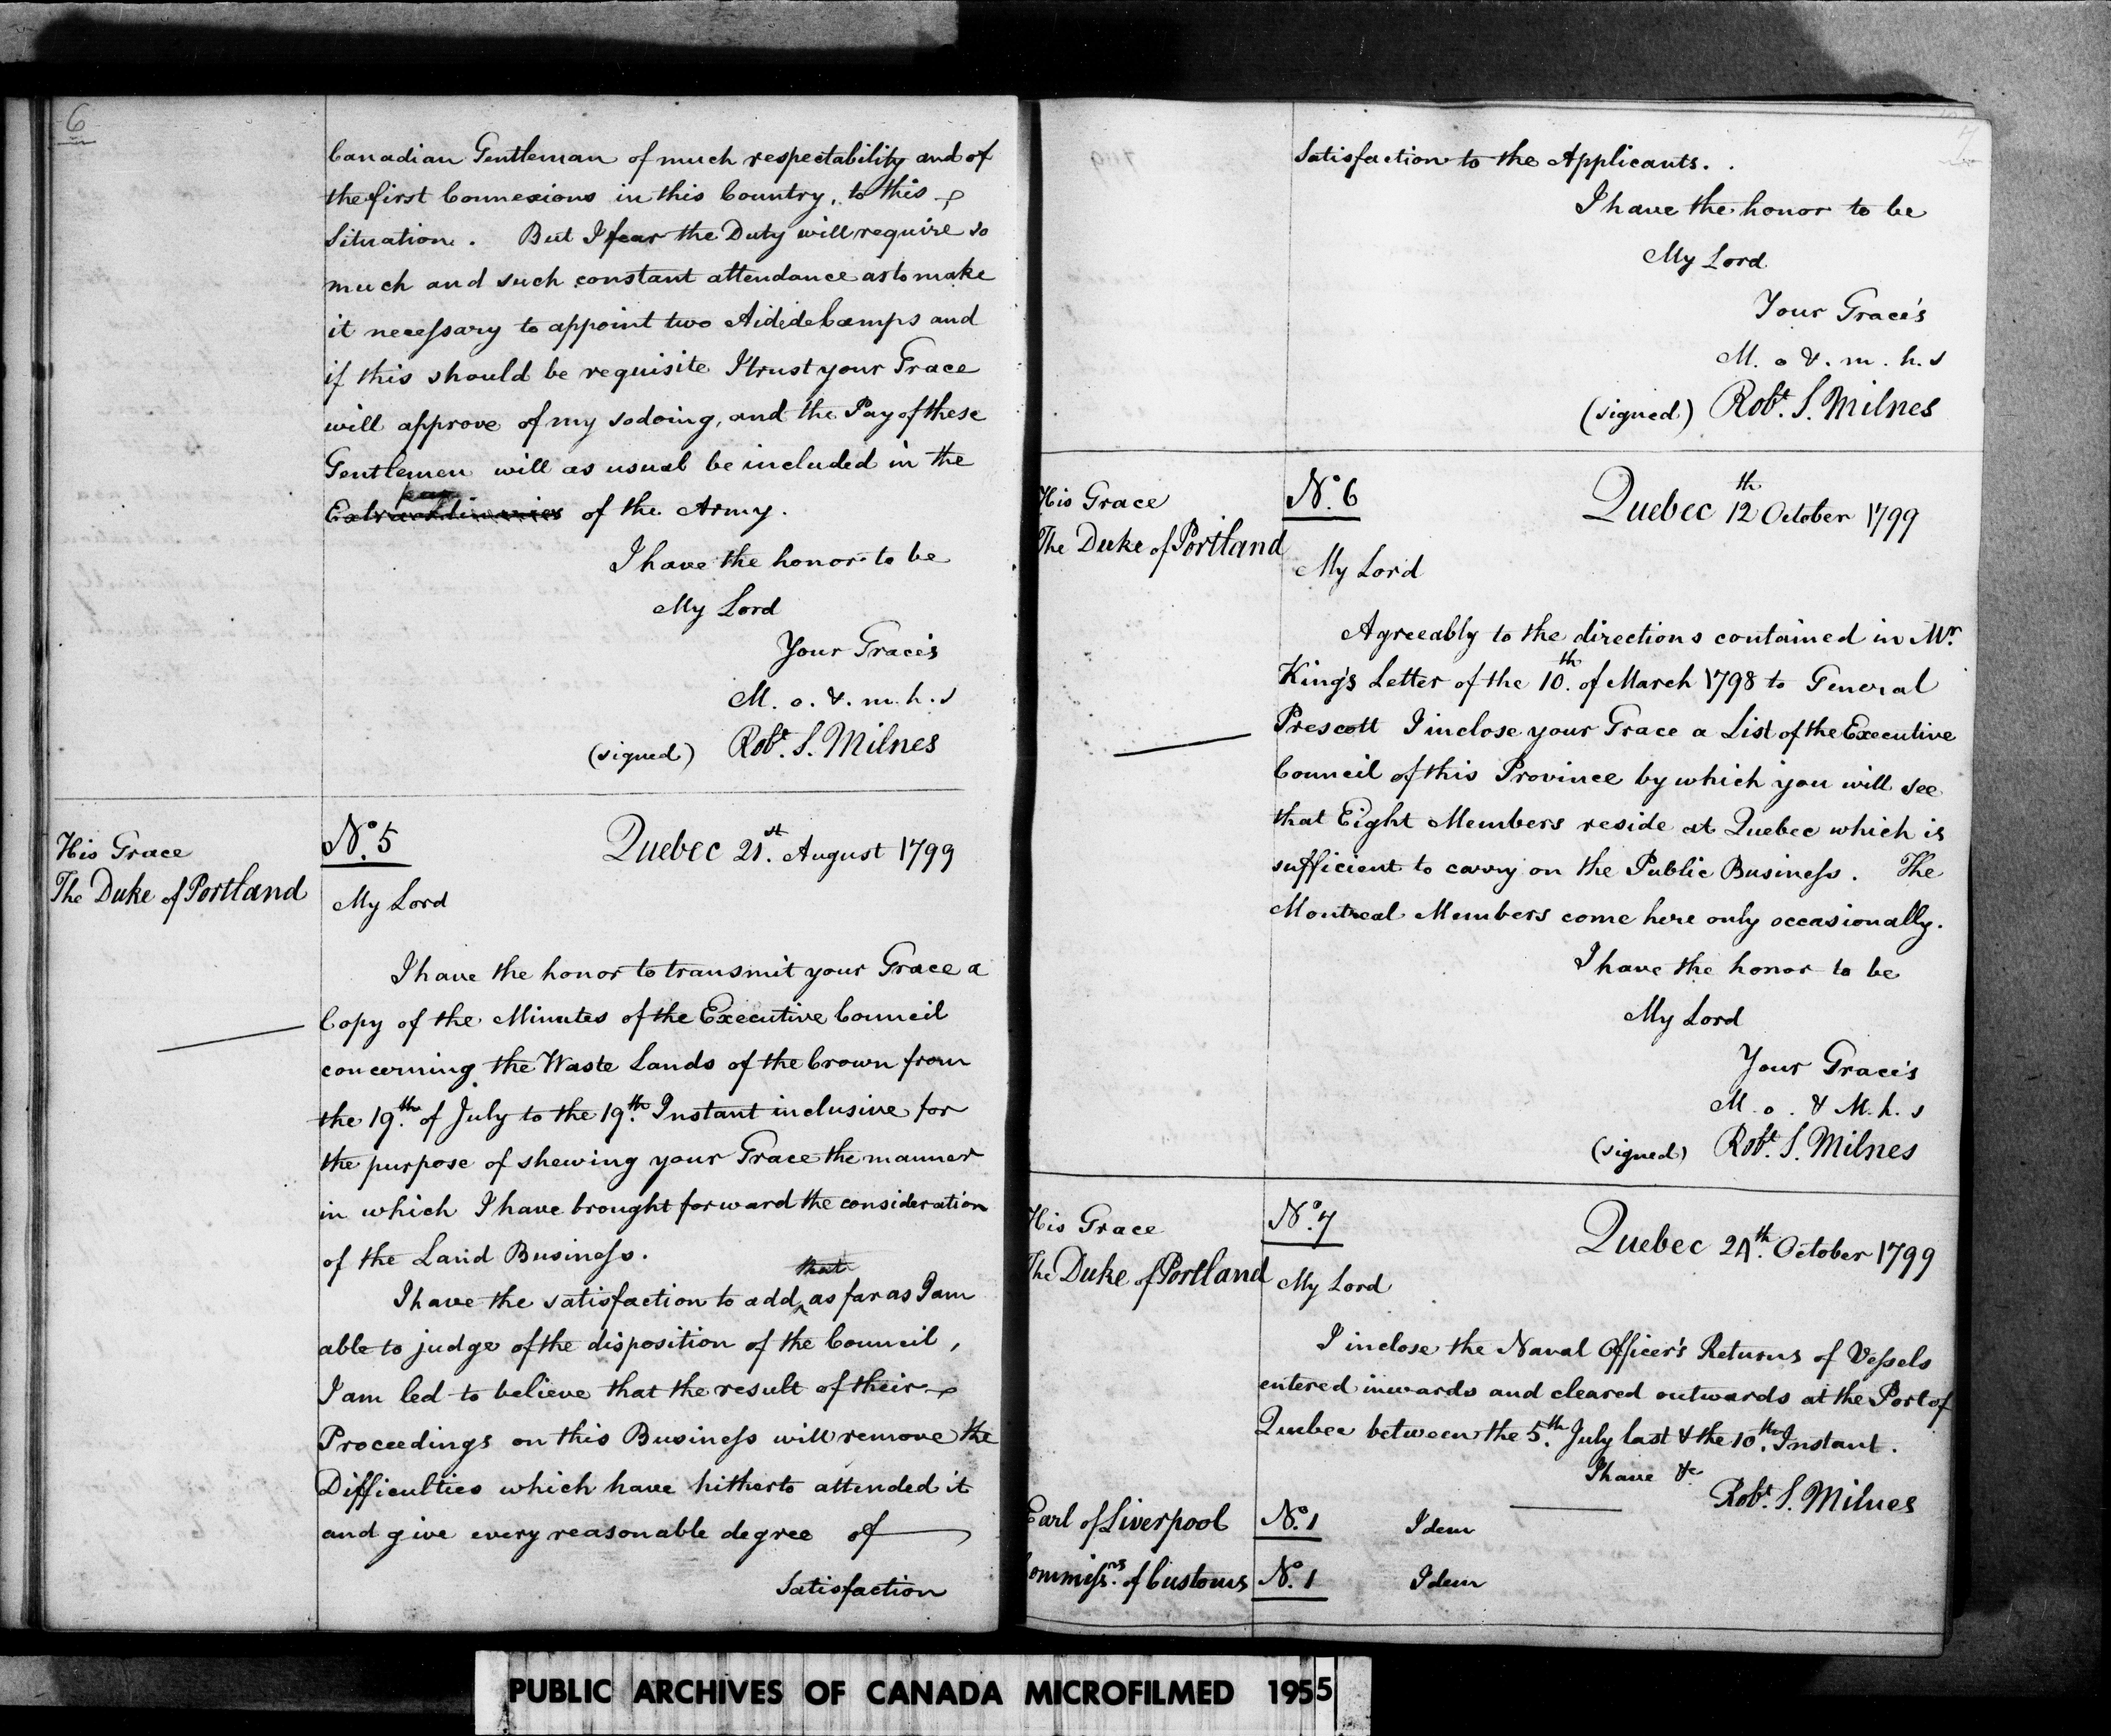 6
Canadian Gentleman of much respectability and of
the first Connexions in this Country, to this
Situation. But I fear the Duty will require so
much and such constant attendance as to make
it necessary to appoint two Aididecamps and
if this should be requisite I trust your Grace
will approve of my so doing, and the Pay of these
Gentlemen will as usual be included in the
Extraordinaries of the Army.
I have the honor to be
My Lord
Your Grace's
M. o. & . m. h. s
(signed) Robt. S. Milnes
His Grace
The Duke of Portland
No. 5
Quebec 21st. August 1799
My Lord
I have the honor to transmit your Grace a
Copy of the Minutes of the Executive Council
concerning the Waste Lands of the Crown from
the 19th. of July to the 19th. Instant inclusive for
the purpose of shewing your Grace the manner
in which I have brought forward the consideration
of the Land Business.
that
I have the satisfaction to add, as far as I am
able to judge of the disposition of the Council,
I am led to believe that the result of their
Proceedings on this Business will remove the
Difficulties which have hitherto attended it
and give every reasonable degree of
Satisfaction
7
Satisfaction to the Applicants.
I have the honor to be
My Lord
Your Grace's
M. o & . m. h. s
(signed) Robt. S. Milnes
His Grace
The Duke of Portland
No. 6
Quebec 12th October 1799
My Lord
Agreeably to the directions contained in Mr.
King's Letter of the 10th. of March 1798 to General
Prescott I inclose your Grace a List of the Executive
Council of this Province by which you will see
that Eight Members reside at Quebec which is
sufficient to carry on the Public Business. The
Montreal Members come here only occasionally.
I have the honor to be
My Lord
Your Grace's
M. o. & M. h. s
(signed) Robt. S. Milnes
His Grace
The Duke of Portland
No. 7
Quebec 24th. October 1799
My Lord
I inclose the Naval Officer's Returns of Vessels
entered inwards and cleared outwards at the Port of
Quebec between the 5th. July last & the 10th. Instant.
I have &c
Robt. S. Milnes
Earl of Liverpool No. 1 Idem
Commissns. of Customs No. 1 Idem
PUBLIC ARCHIVES OF CANADA MICROFILMED 1955